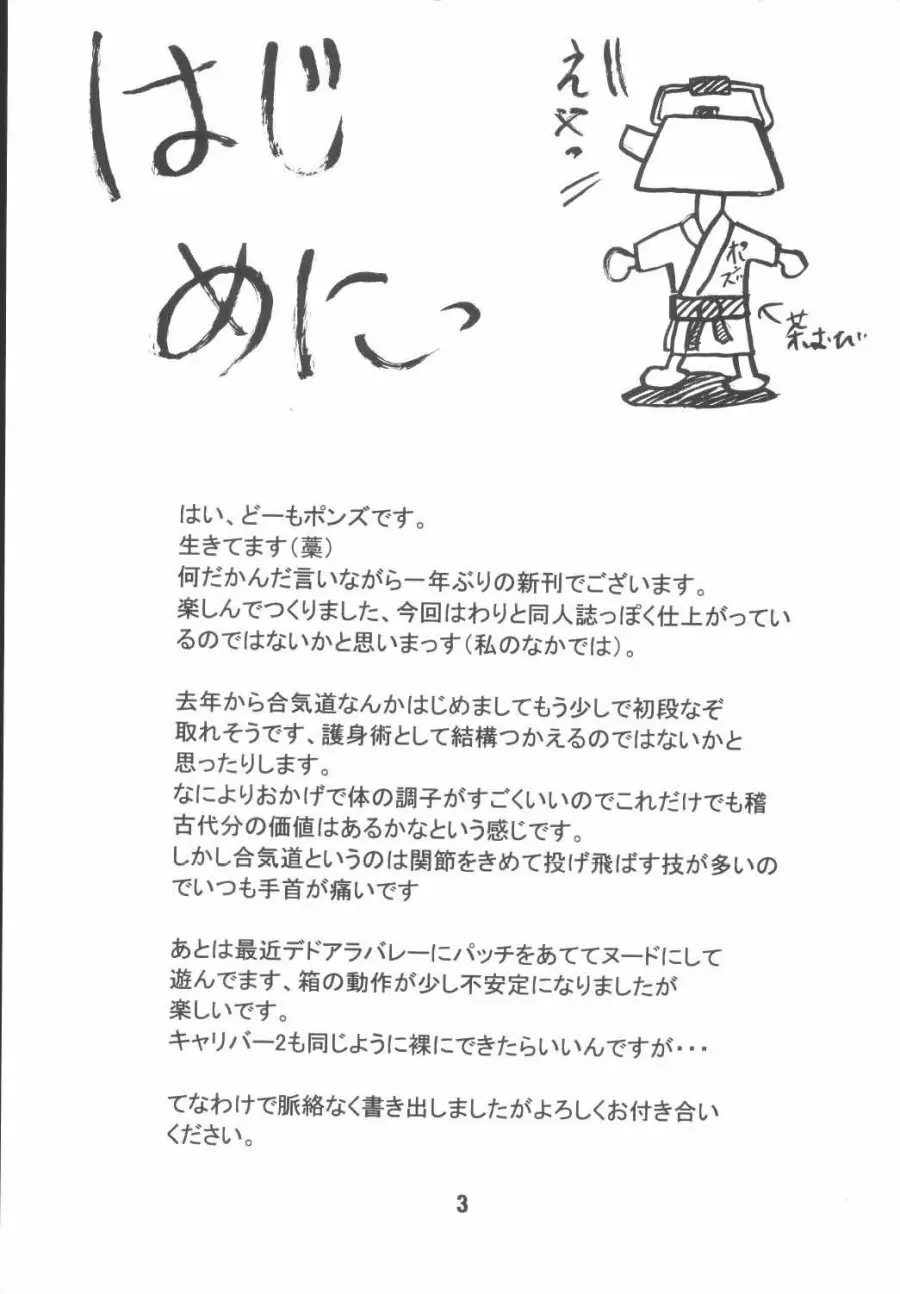 はじ
めにっ
えやっ
ポンズ
茶おび
はい、どーもポンズです。
生きてます(藁)
何だかんだ言いながら一年ぶりの新刊でございます。
楽しんでつくりました、今回はわりと同人誌っぽく仕上がってい
るのではないかと思いまっす(私のなかでは)。
去年から合気道なんかはじめましてもう少しで初段なぞ
取れそうです、護身術として結構つかえるのではないかと
思ったりします。
なによりおかげで体の調子がすごくいいのでこれだけでも稽
古代分の価値はあるかなという感じです。
しかし合気道というのは関節をきめて投げ飛ばす技が多いの
でいつも手首が痛いです
あとは最近デドアラバレーにパッチをあててヌードにして
遊んでます、箱の動作が少し不安定になりましたが
楽しいです。
キャリバー2も同じように裸にできたらいいんですが・・・
てなわけで脈絡なく書き出しましたがよろしくお付き合い
ください。
3